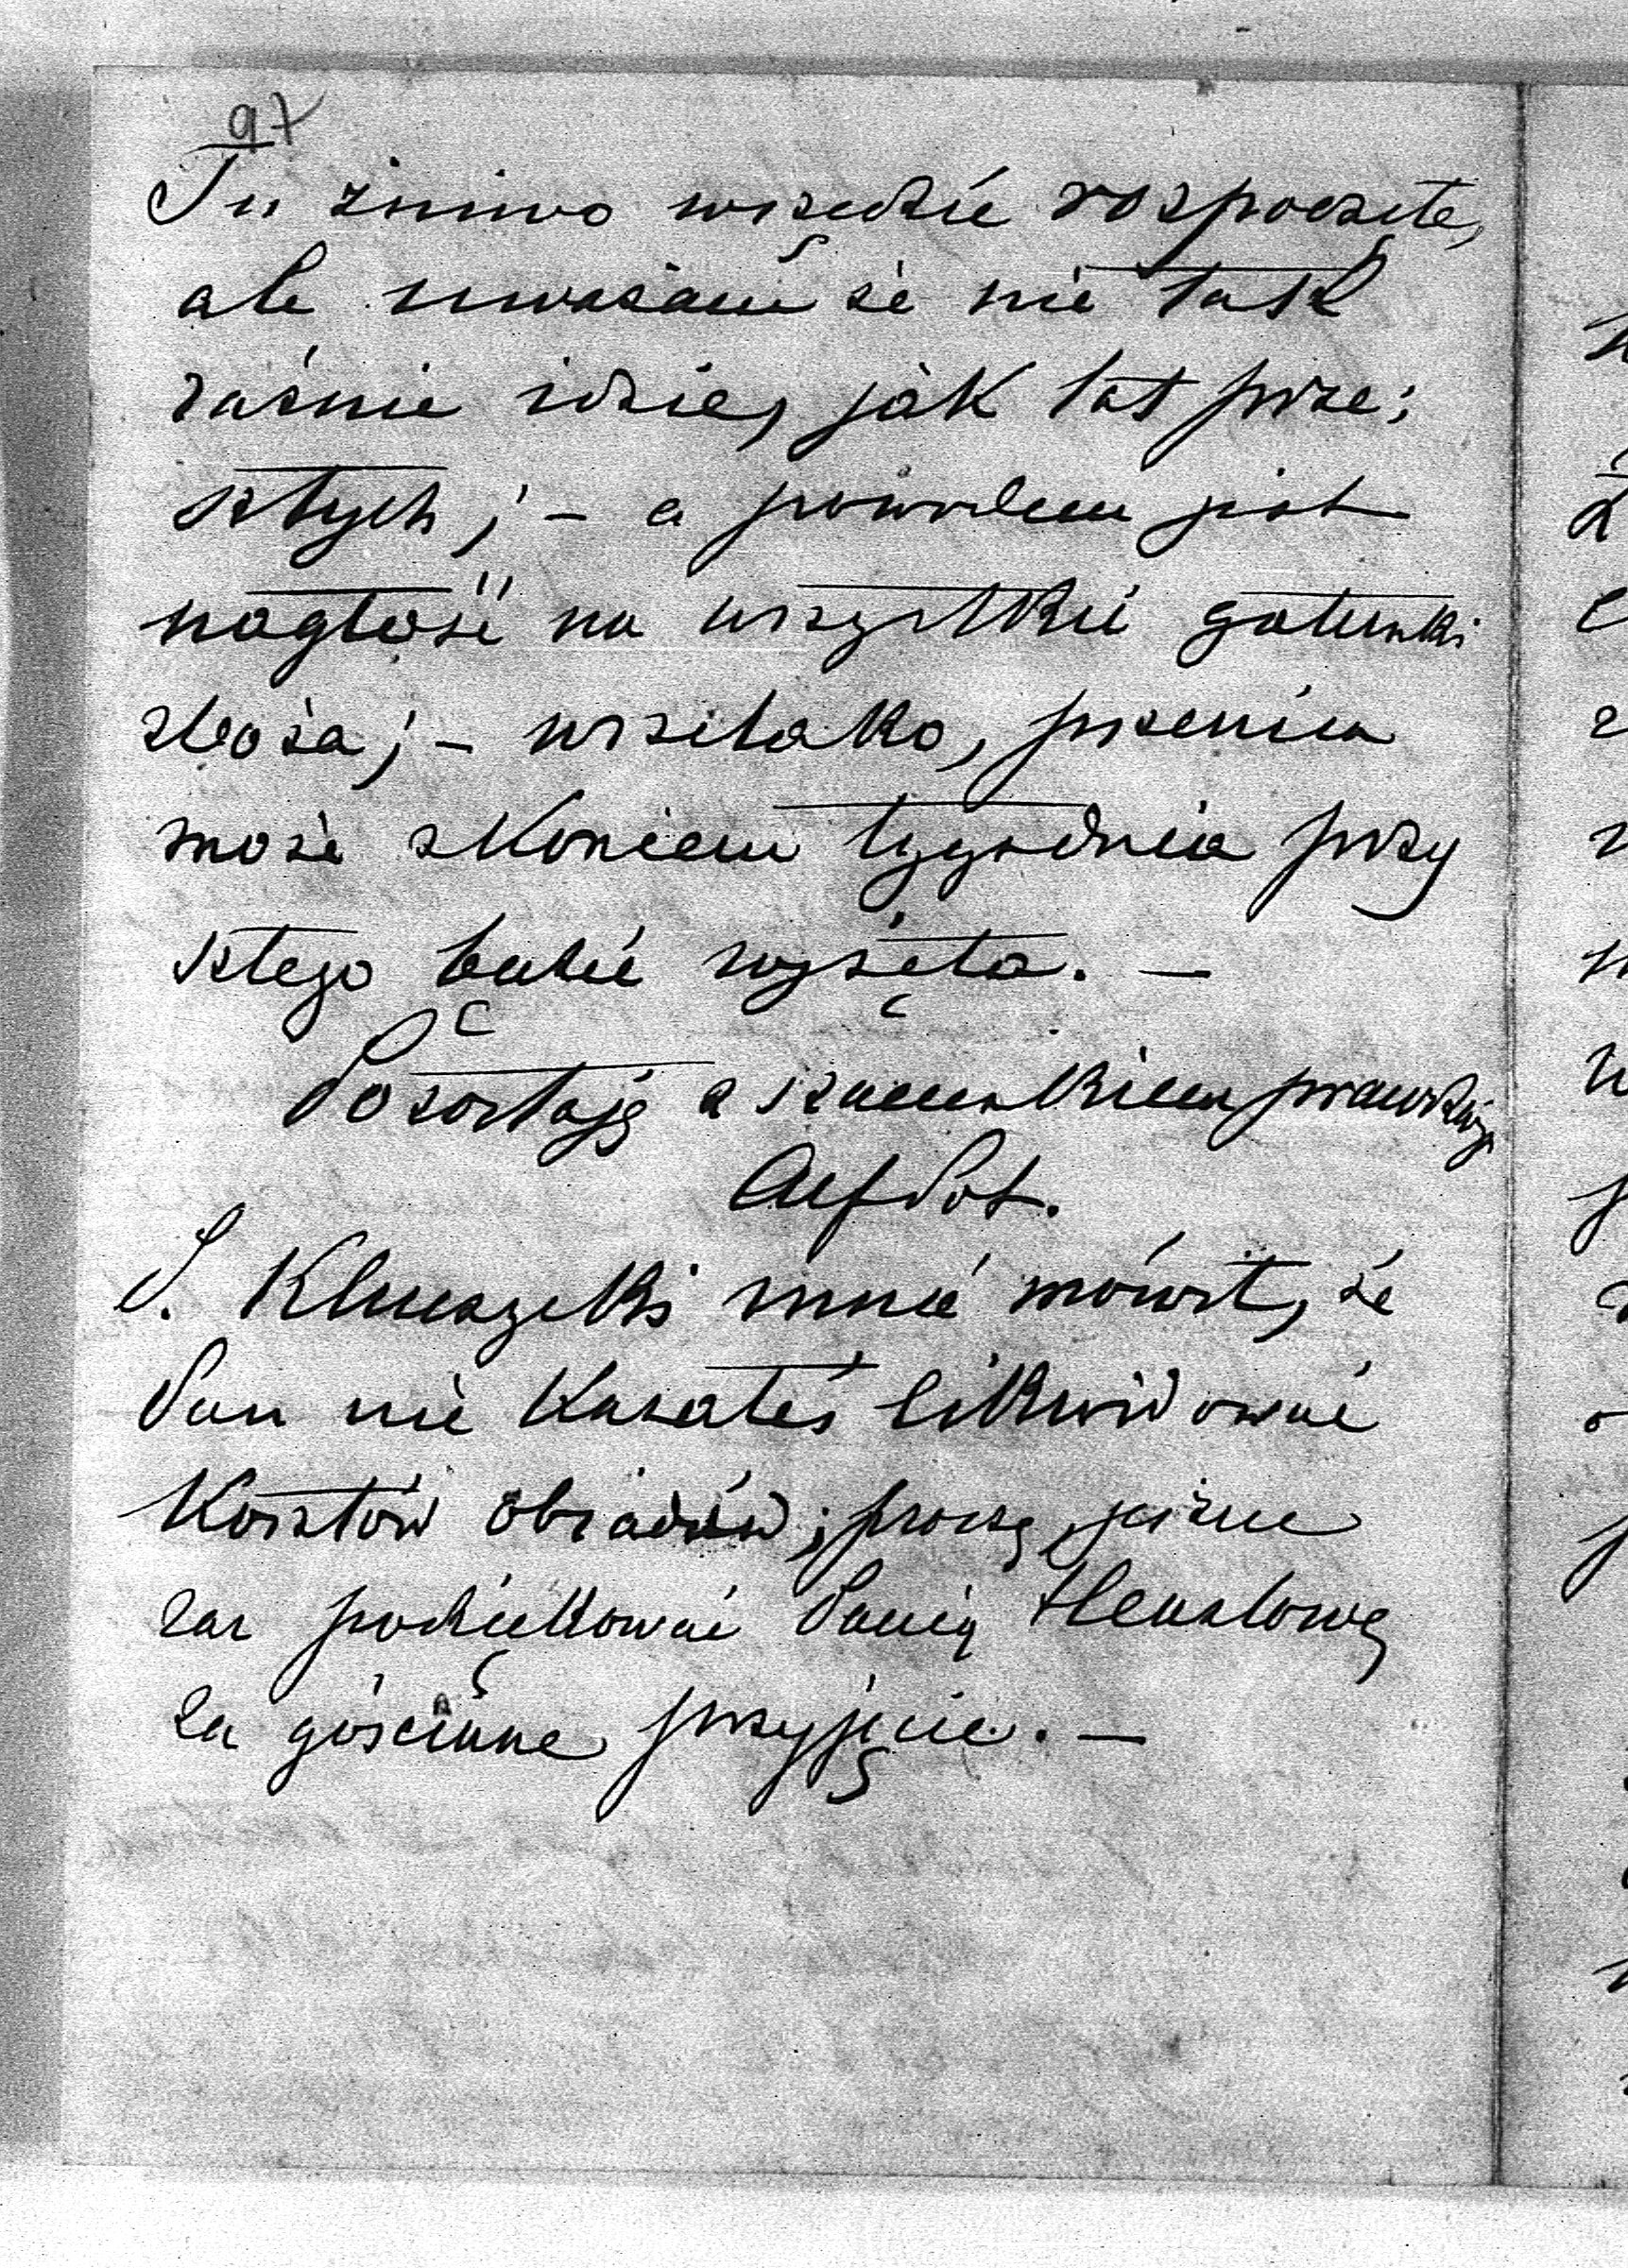 97
Tu żniwo wszędzie rozpoczęte,
ale uważam że nie tak
raźnie idzie, jak łat prze:
szłych; – a powodem jest
nagłość na wszystkie gatunki
zboża; – wszelako, pszenica
może z końcem tygodnia przy
szłego będzie wyżęta. –
Pozostaję z szacunkiem prawdziwym
Alf Pot.
P. Kluszycki mnie mówił, że
Pan nie kazałeś likwidować
Kosztów obiadów; proszę jeszcze
raz podziękować Panią
za gościnne przyjęcie. –